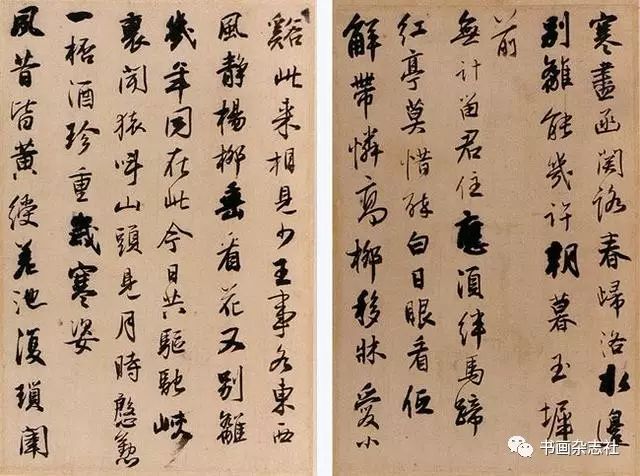 寒盡函關路春歸洛水邊
別離能幾許朝暮玉墀
前
無計留君住應須絆馬蹄
紅亭莫惜醉白日眼看低
解帶憐高柳移牀愛小
谿此來相見少王事各東西
風靜楊柳垂看花又別離
幾年同在此今日共驅馳峽
裏聞猿叫山頭見月時慇懃
一桮酒珍重歲寒姿
夙昔皆黃綬差池復瑣闈
书画杂志社